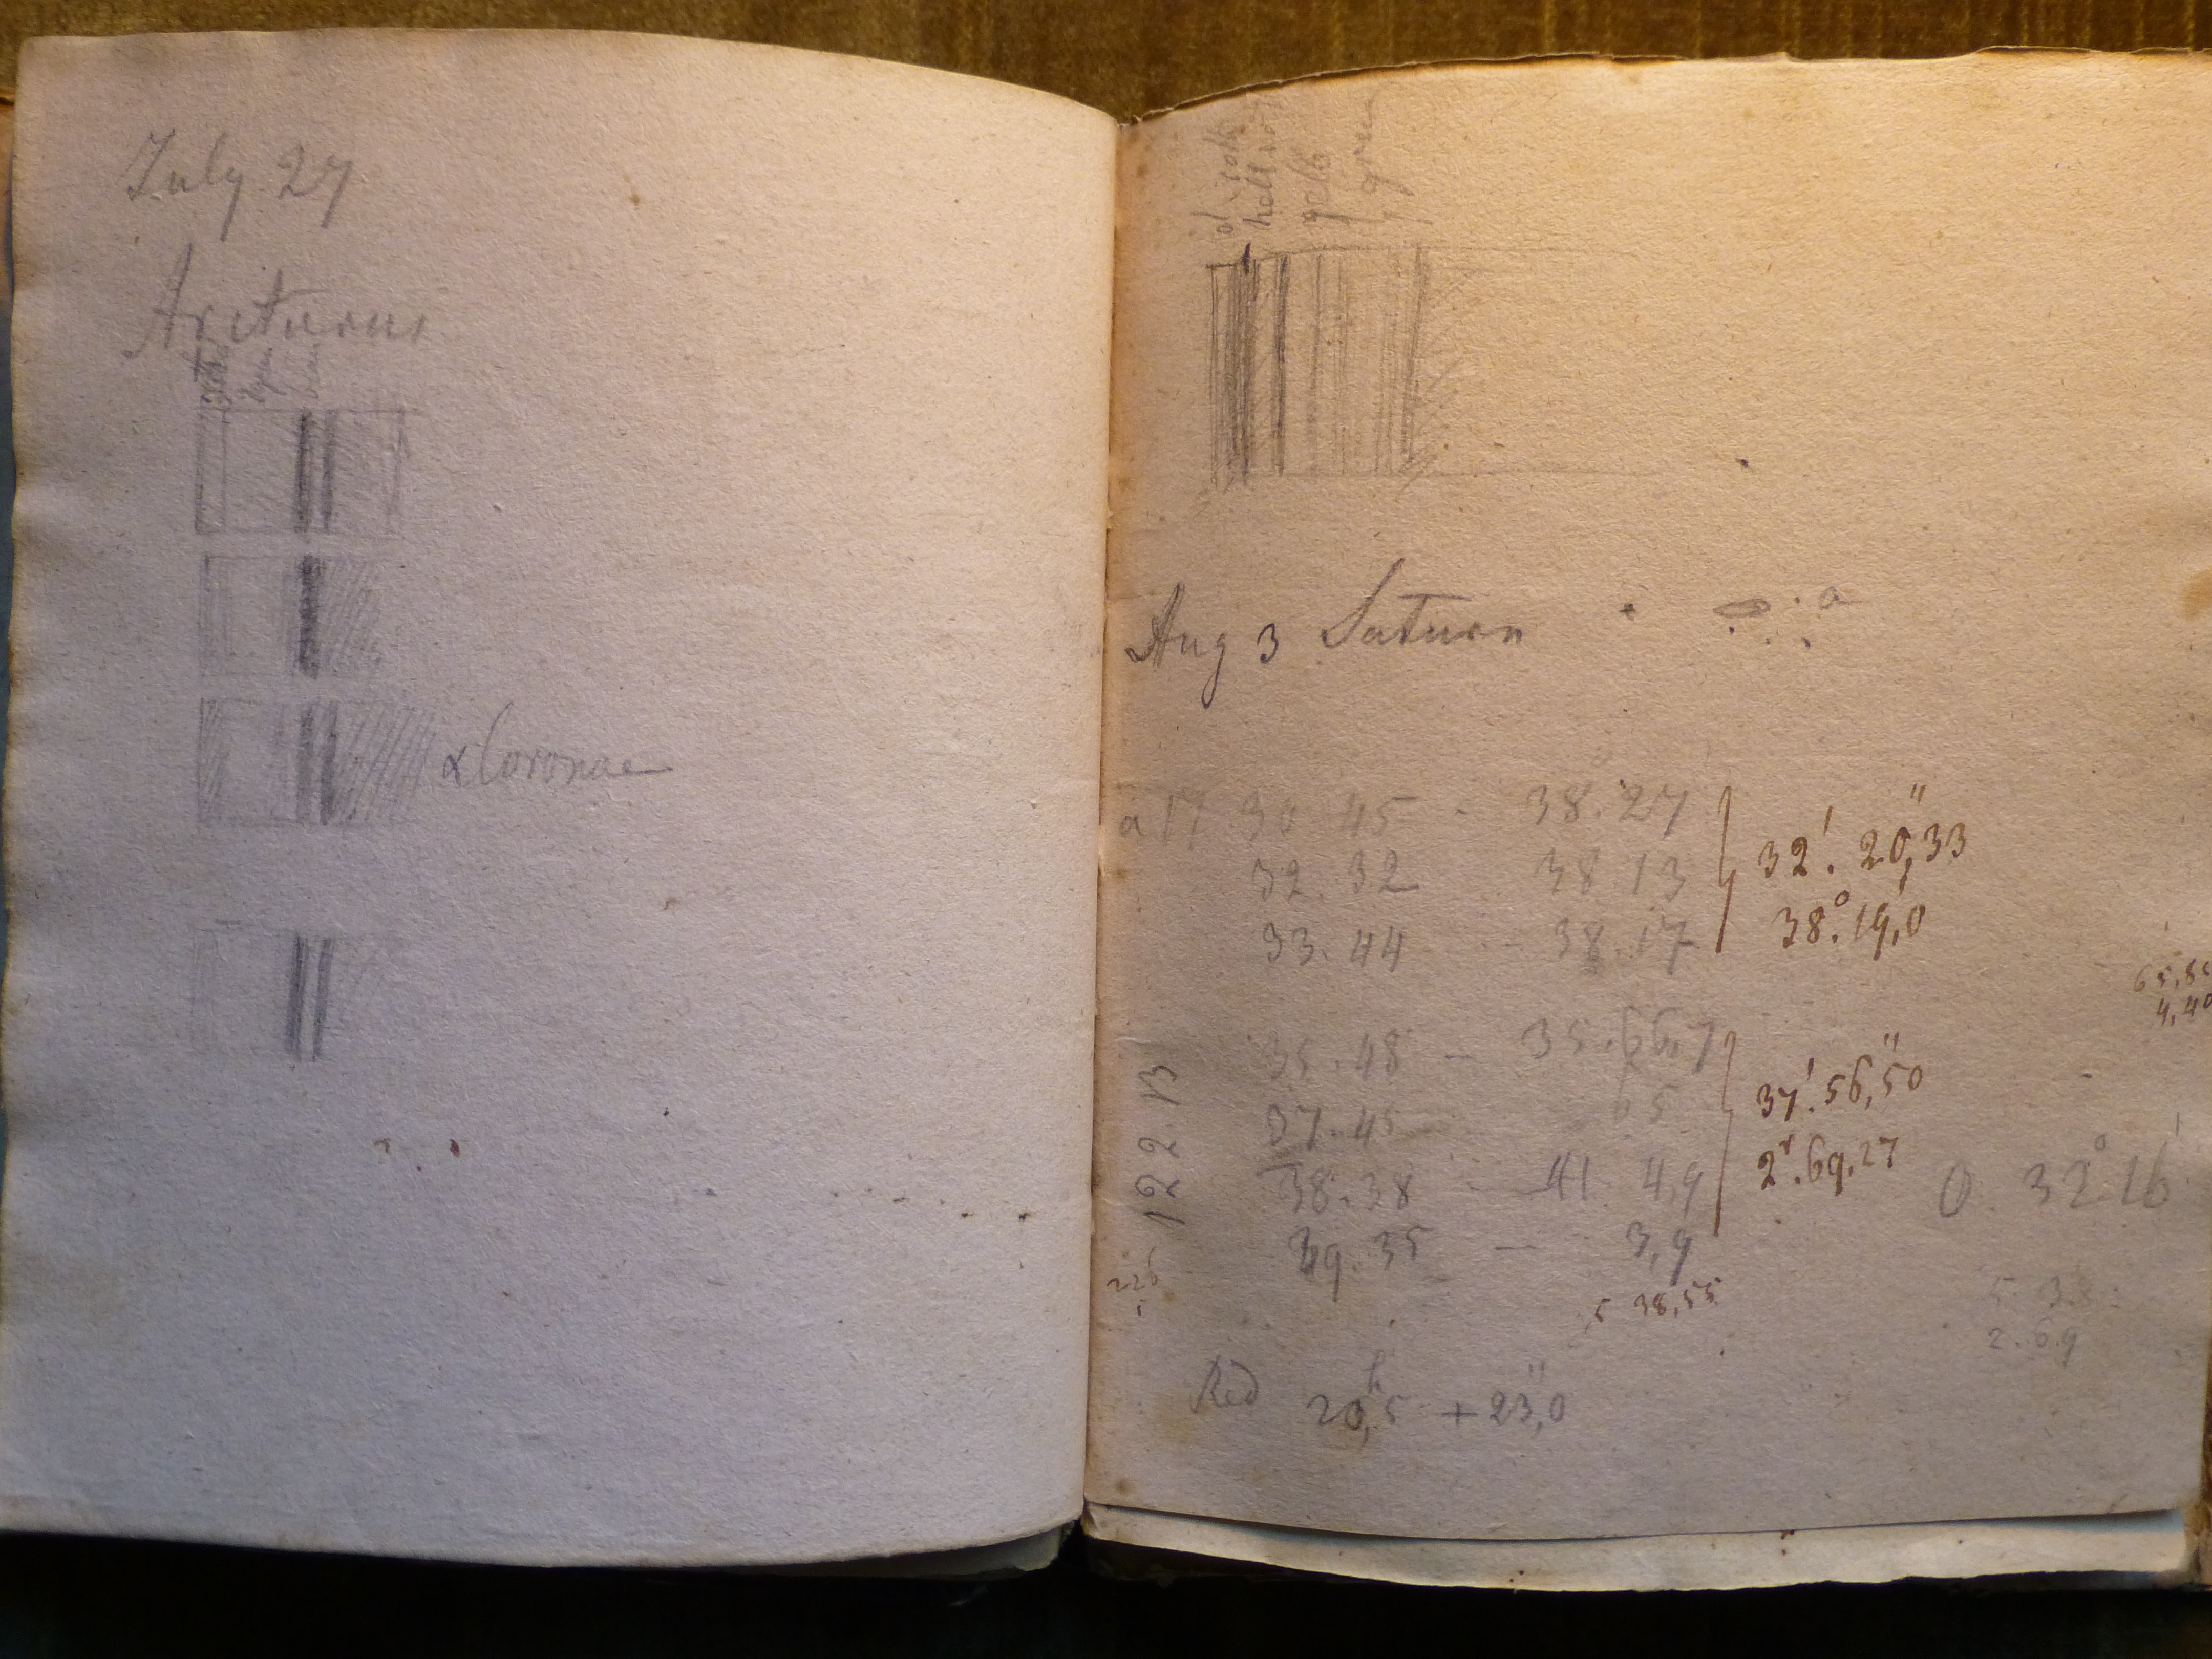 July 27
Arcturus
α Coronae
roth
gelb
grün
Aug 3 Saturn
a
a 17 30 45 - 38.27
32. 32 38 13
33. 44 - 38.17
32'. 20",33
38°. 19,0
65,8
4,40
122 B
35.48 - 35.66,7
37.45 65
38.38 - 41 4,9
39.35 - 3,9
37'. 56",50
2r. 69,27
0. 32°. 16'
38,55
2.69
Red 20h,5 + 23",0